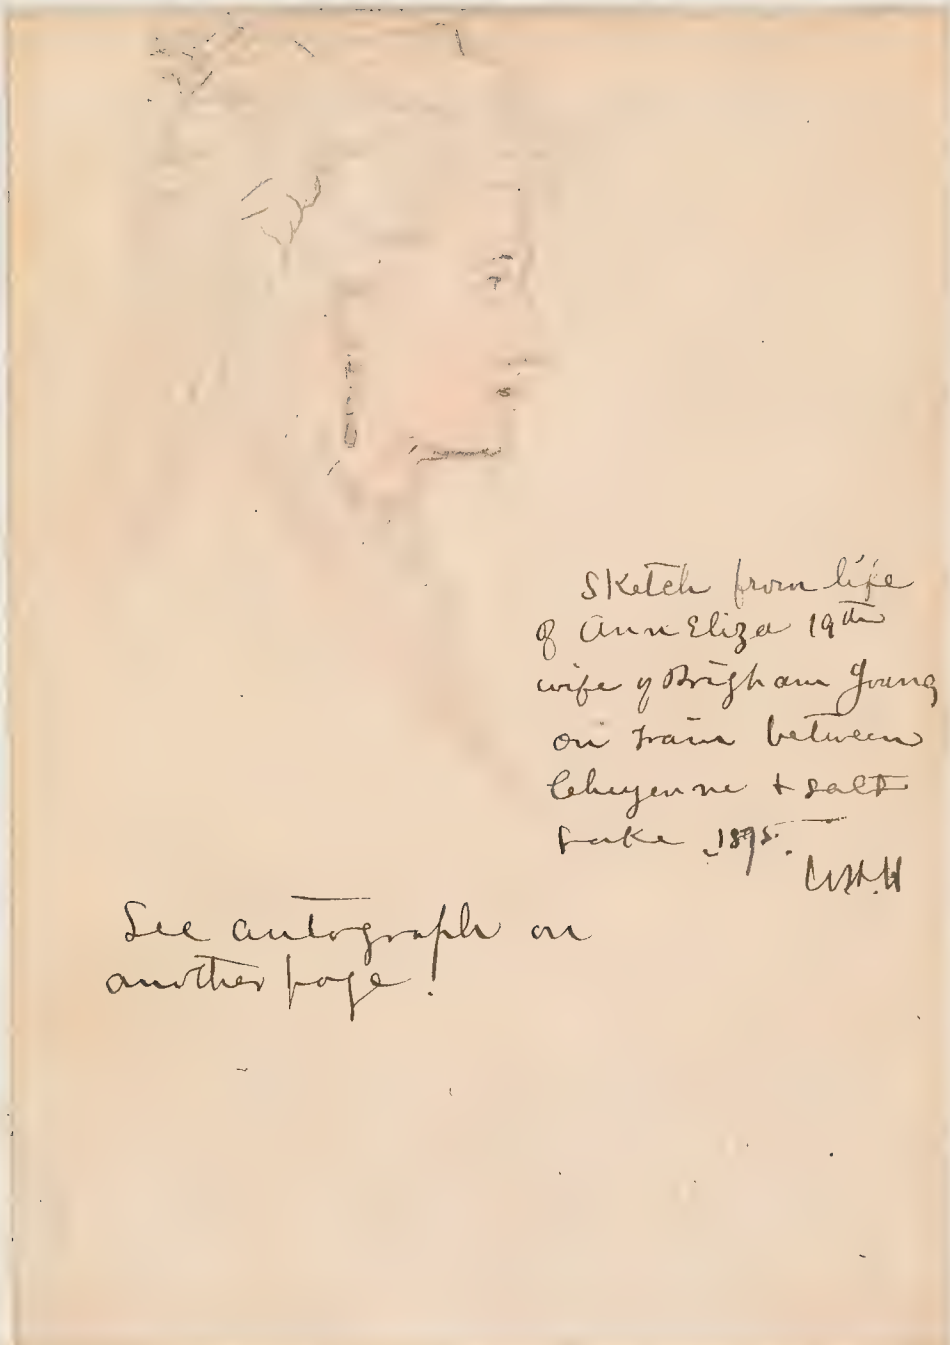 Sketch from life
of Ann Eliza 19th
wife of Brigham Young
on train between
Cheyenne + Salt
Lake 1875.
See autograph on
another page!